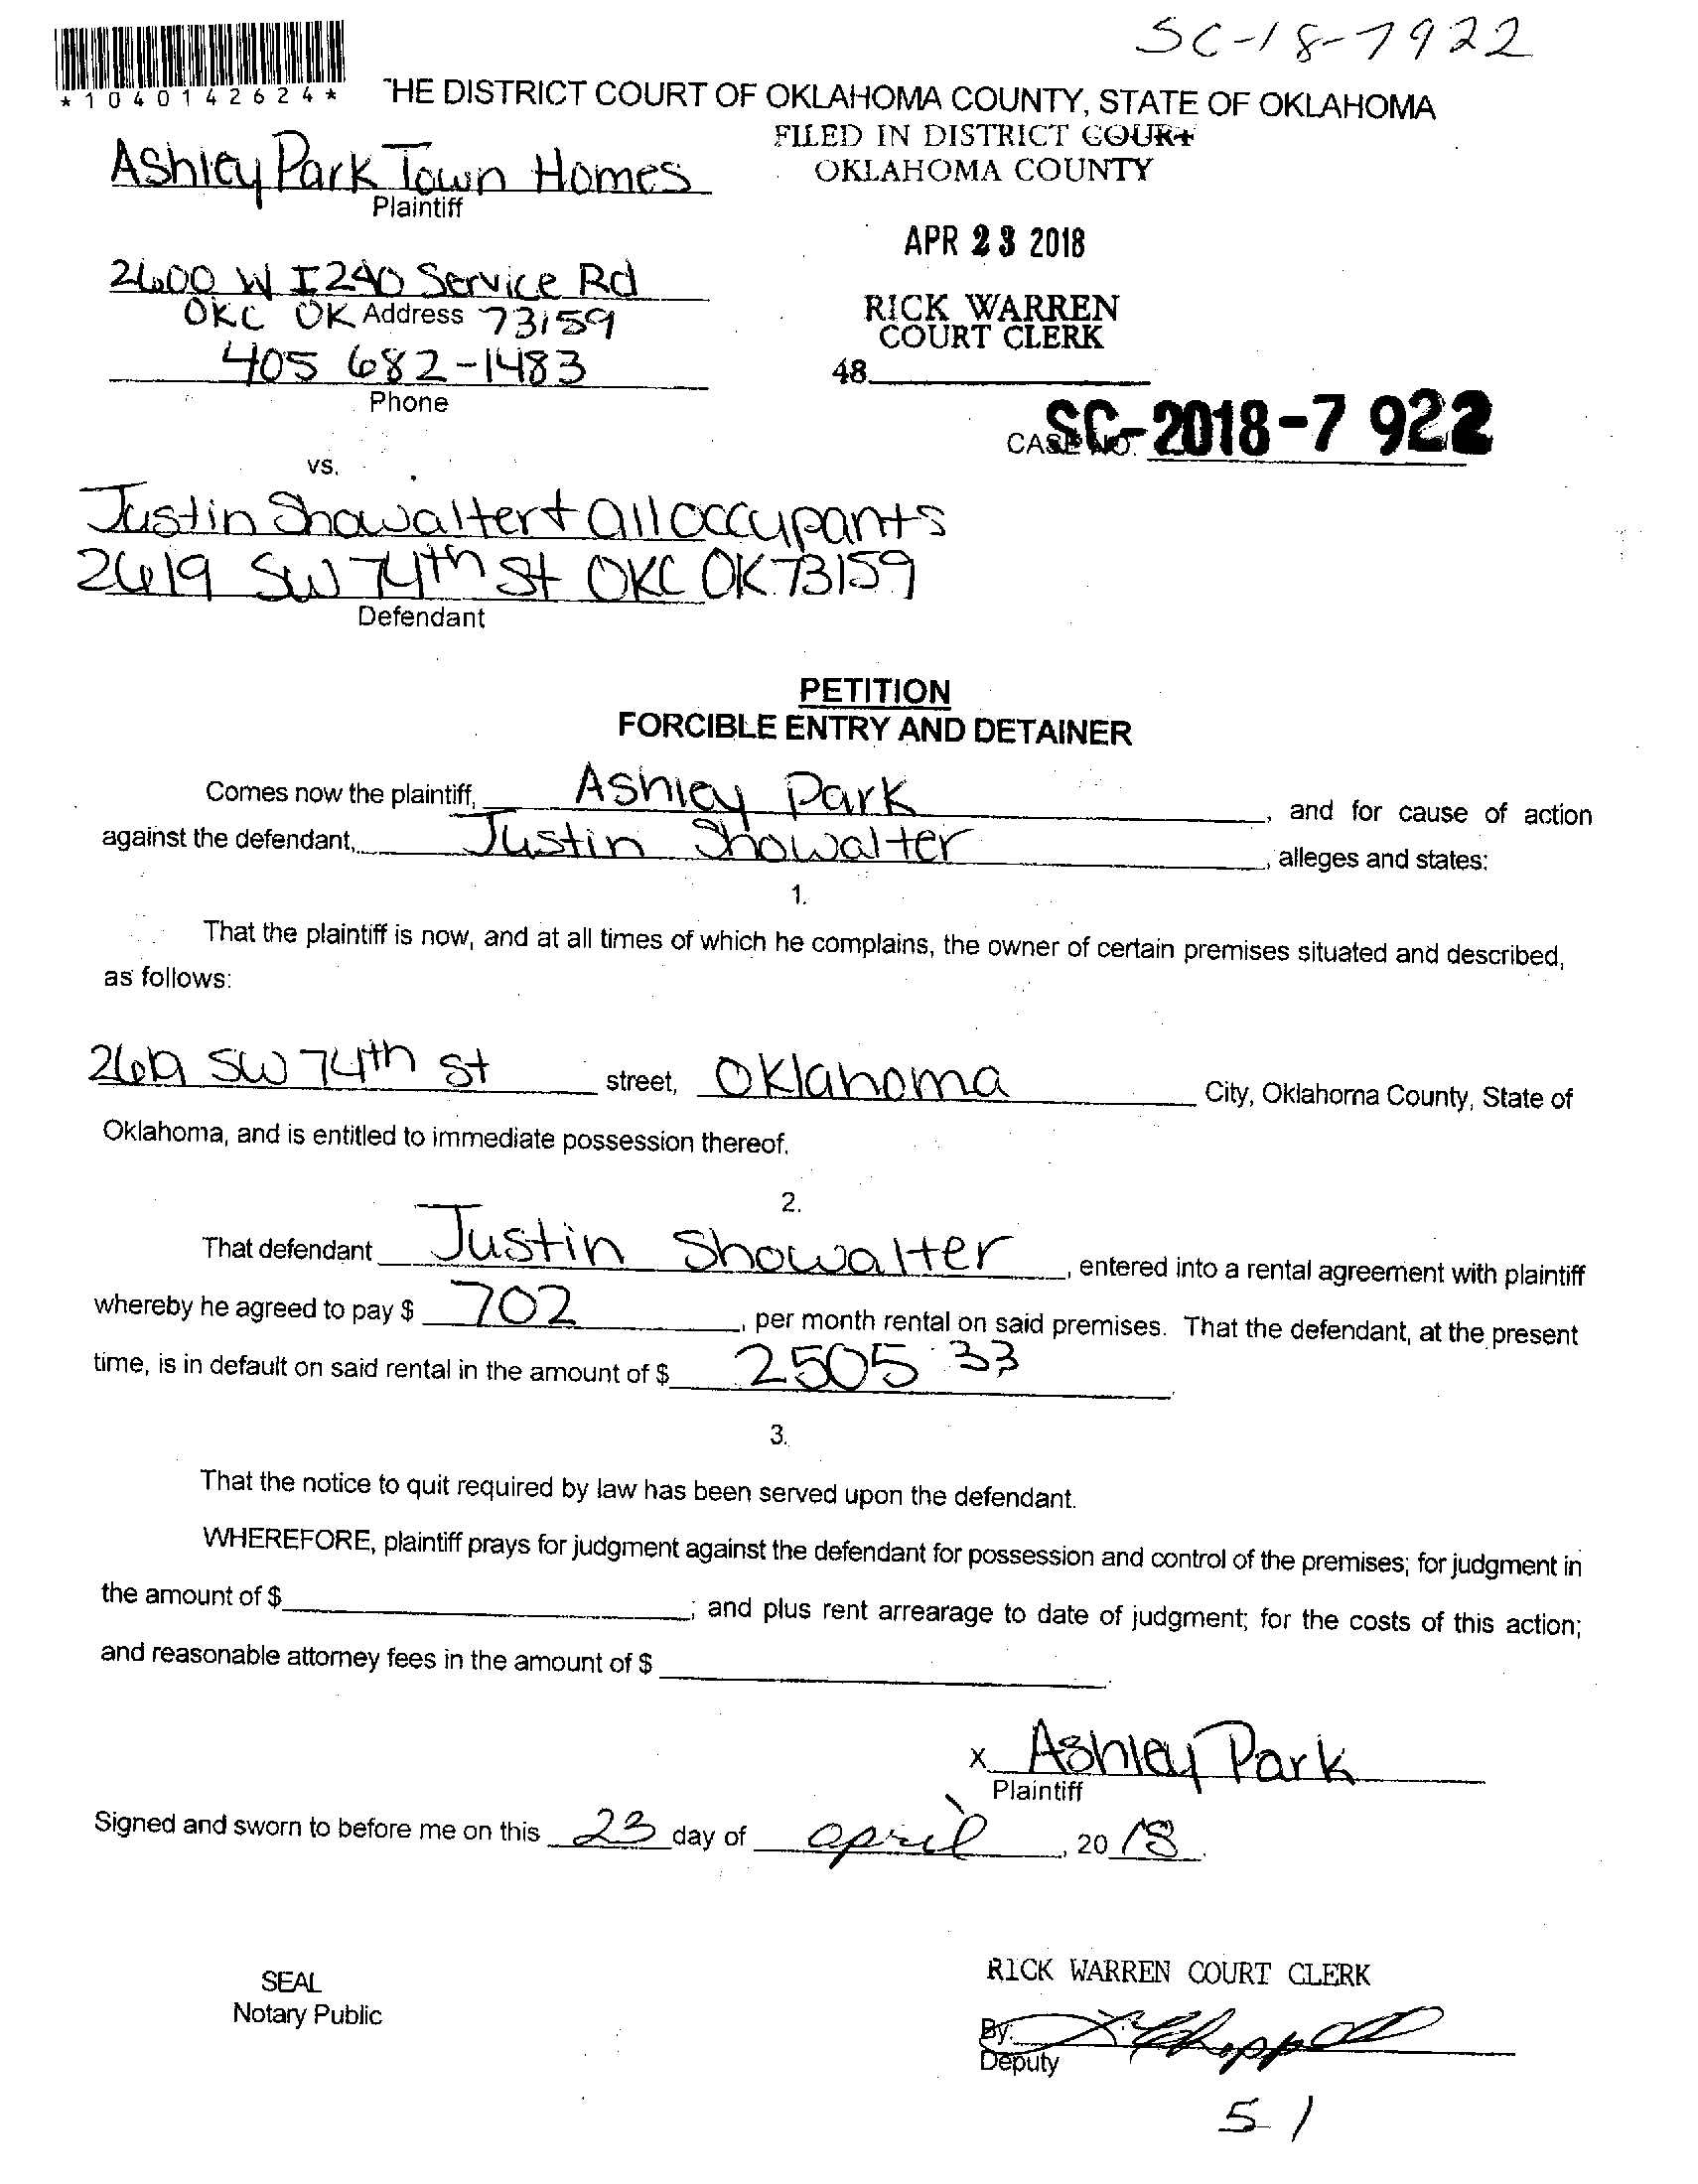 SC-18-7922
*1040142624*
THE DISTRICT COURT OF OKLAHOMA COUNTY, STATE OF OKLAHOMA
FILED IN DISTRICT COURT
OKLAHOMA COUNTY
Ashley Park Town Homes
Plaintiff
APR 23 2018
2600 W I240 Service Rd
OKC OK Address 73159
RICK WARREN
COURT CLERK
405 682-1483
48
Phone
CASE NO. SC-2018-7922
vs.
Justin Showalter + all occupants
2619 SW 74th St OKC OK 73159
Defendant
PETITION
FORCIBLE ENTRY AND DETAINER
Comes now the plaintiff, Ashley Park, and for cause of action
against the defendant, Justin Showalter, alleges and states:
1.
That the plaintiff is now, and at all times of which he complains, the owner of certain premises situated and described,
as follows:
2619 SW 74th St street, Oklahoma City, Oklahoma County, State of
Oklahoma, and is entitled to immediate possession thereof.
2.
That defendant Justin Showalter, entered into a rental agreement with plaintiff
whereby he agreed to pay $ 702, per month rental on said premises. That the defendant, at the present
time, is in default on said rental in the amount of $ 2505 33
3.
That the notice to quit required by law has been served upon the defendant.
WHEREFORE, plaintiff prays for judgment against the defendant for possession and control of the premises; for judgment in
the amount of $ ; and plus rent arrearage to date of judgment; for the costs of this action;
and reasonable attorney fees in the amount of $ .
x Ashley Park
Plaintiff
Signed and sworn to before me on this 23 day of april, 2018.
SEAL
Notary Public
RICK WARREN COURT CLERK
By:
Deputy
51